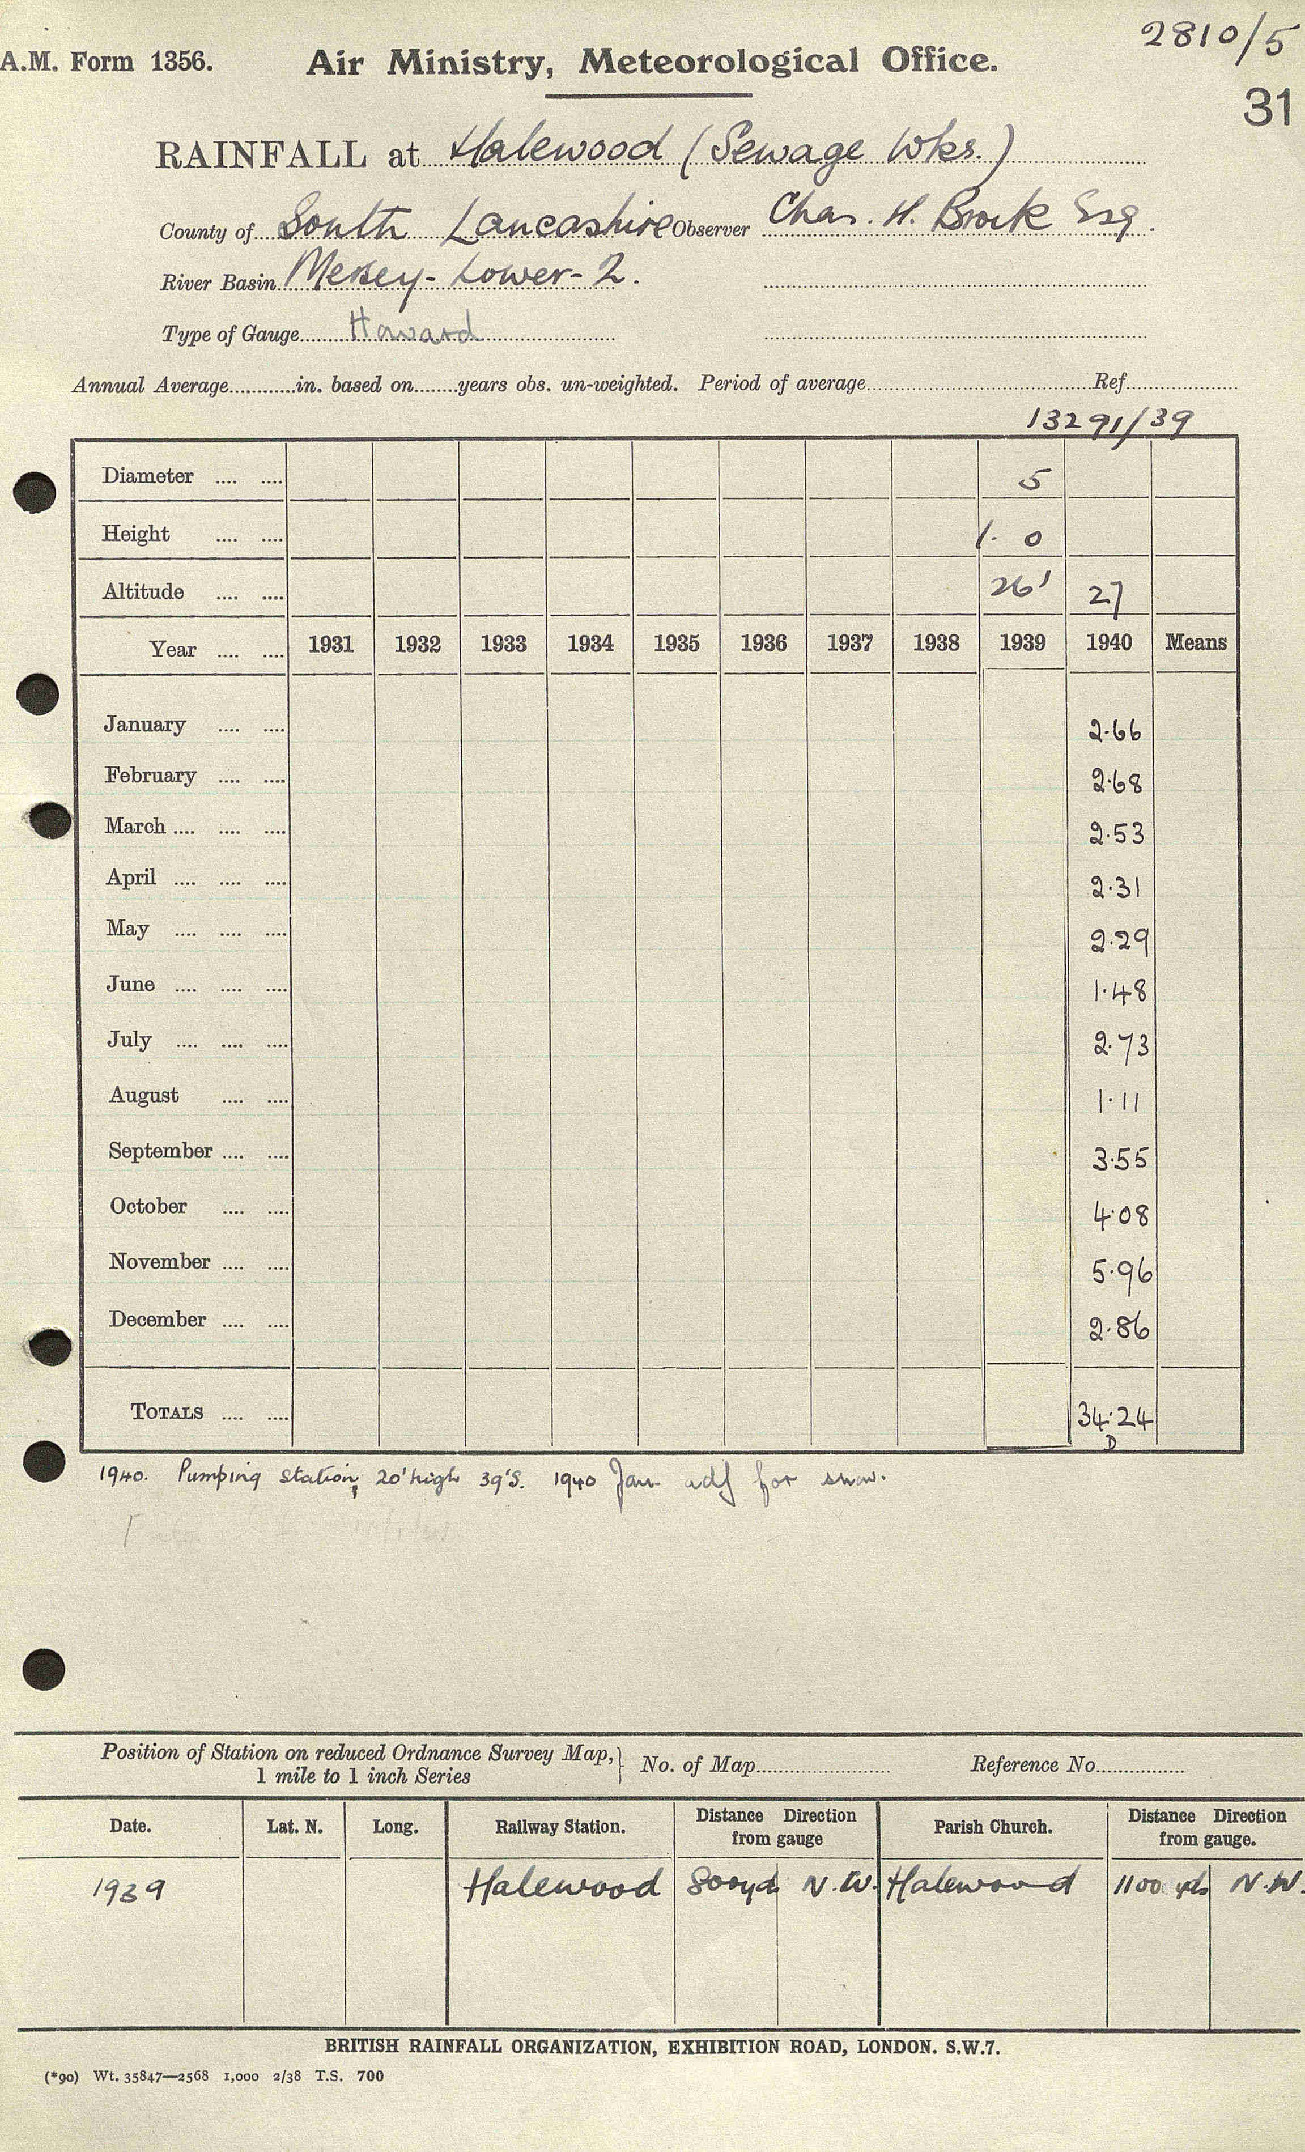 2810/5
A.M. Form 1356. Air Ministry, Meteorological Office.
31
RAINFALL at Halewood (Sewage Wks.)
County of South Lancashire Observer Chas. H. Brook Esq.
River Basin Mersey - Lower - 2.
Type of Gauge Howard
Annual Average in. based on years obs. un-weighted. Period of average Ref
13291/39
Diameter 5
Height 1. 0
Altitude 26' 27
Year 1931 1932 1933 1934 1935 1936 1937 1938 1939 1940 Means
January 2.66
February 2.68
March 2.53
April 2.31
May 2.29
June 1.48
July 2.73
August 1.11
September 3.55
October 4.08
November 5.96
December 2.86
TOTALS 34.24
D
1940. Pumping station, 20' high 39'S. 1940 Jan adj for snow.
Position of Station on reduced Ordnance Survey Map,
1 mile to 1 inch Series
No. of Map Reference No.
Date. Lat. N. Long. Railway Station. Distance Direction from gauge Parish Church. Distance Direction from gauge.
1939 Halewood 800yds N.W. Halewood 1100 yds N.W.
BRITISH RAINFALL ORGANIZATION, EXHIBITION ROAD, LONDON. S.W.7.
(*90) Wt. 35847—2568 1,000 2/38 T.S. 700